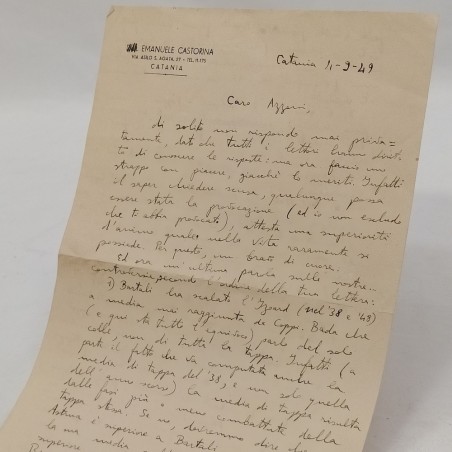 EMANUELE CASTORINA
VIA ASILO S. AGATA, 27 - TEL. 11-175
CATANIA
Catania 4-9-49
Caro Azzini,
di solito non rispondo mai priva=
tamente, dato che tutti i lettori hanno dirit
to di conoscere le risposte: ma ora faccio uno
strappo con piacere, giacchè lo meriti. Infatti
il saper chiedere scusa, qualunque possa
essere stata la provocazione (ed io non escludo
che ti abbia provocato), attesta una superiorità
d'animo quale nella vita raramente si
possiede. Per questo, un bravo di cuore.
Ed ora un'ultima parola sulle nostre
controversie, secondo l'ordine della tua lettera:
1) Bartali ha scalato l'Izoard (nel '38 e '48)
a media mai raggiunta da Coppi. Bada che
(e qui sta tutto l'equivoco) parlo del solo
colle, non di tutta la tappa. Infatti (a
parte il fatto che va computata anche la
media di tappa del '38, e non solo quella
dell'anno scorso) la media di tappa risulta
dalle fasi più o meno combattute della
tappa stessa. Se no, dovremmo dire che
è superiore a Bartali
la sua media
superiore